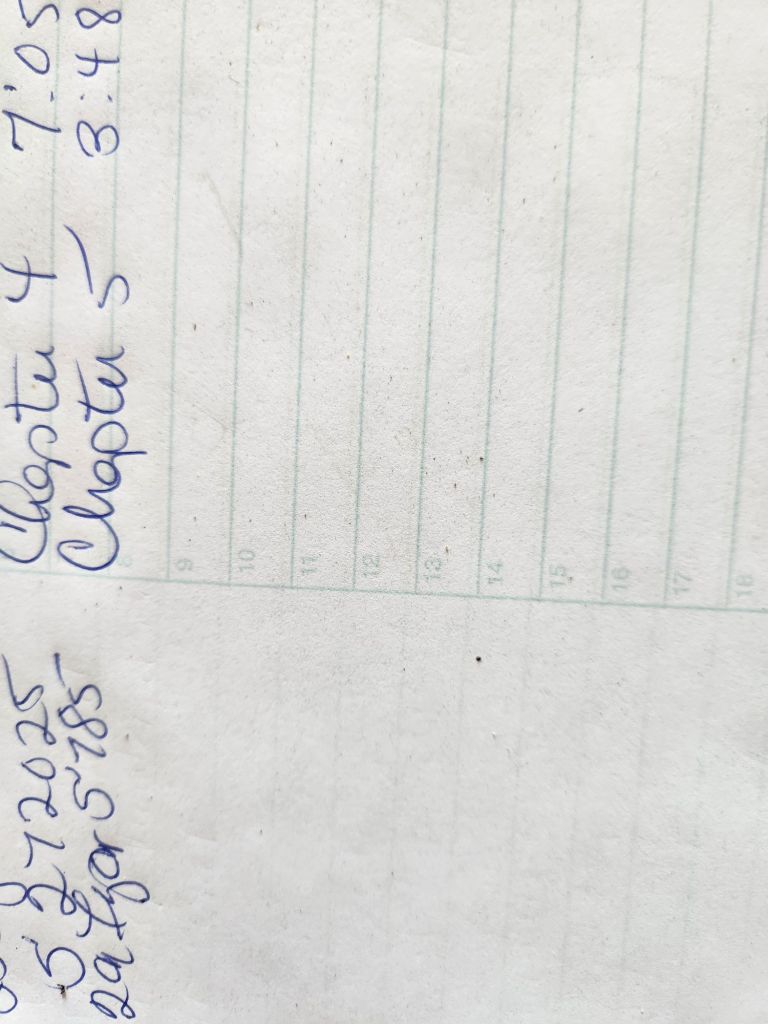 Chapter 4 7:05
5 27 2025
Chapter 5 3:48
29 Iyar 5785
9
10
11
12
13
14
15
16
17
18